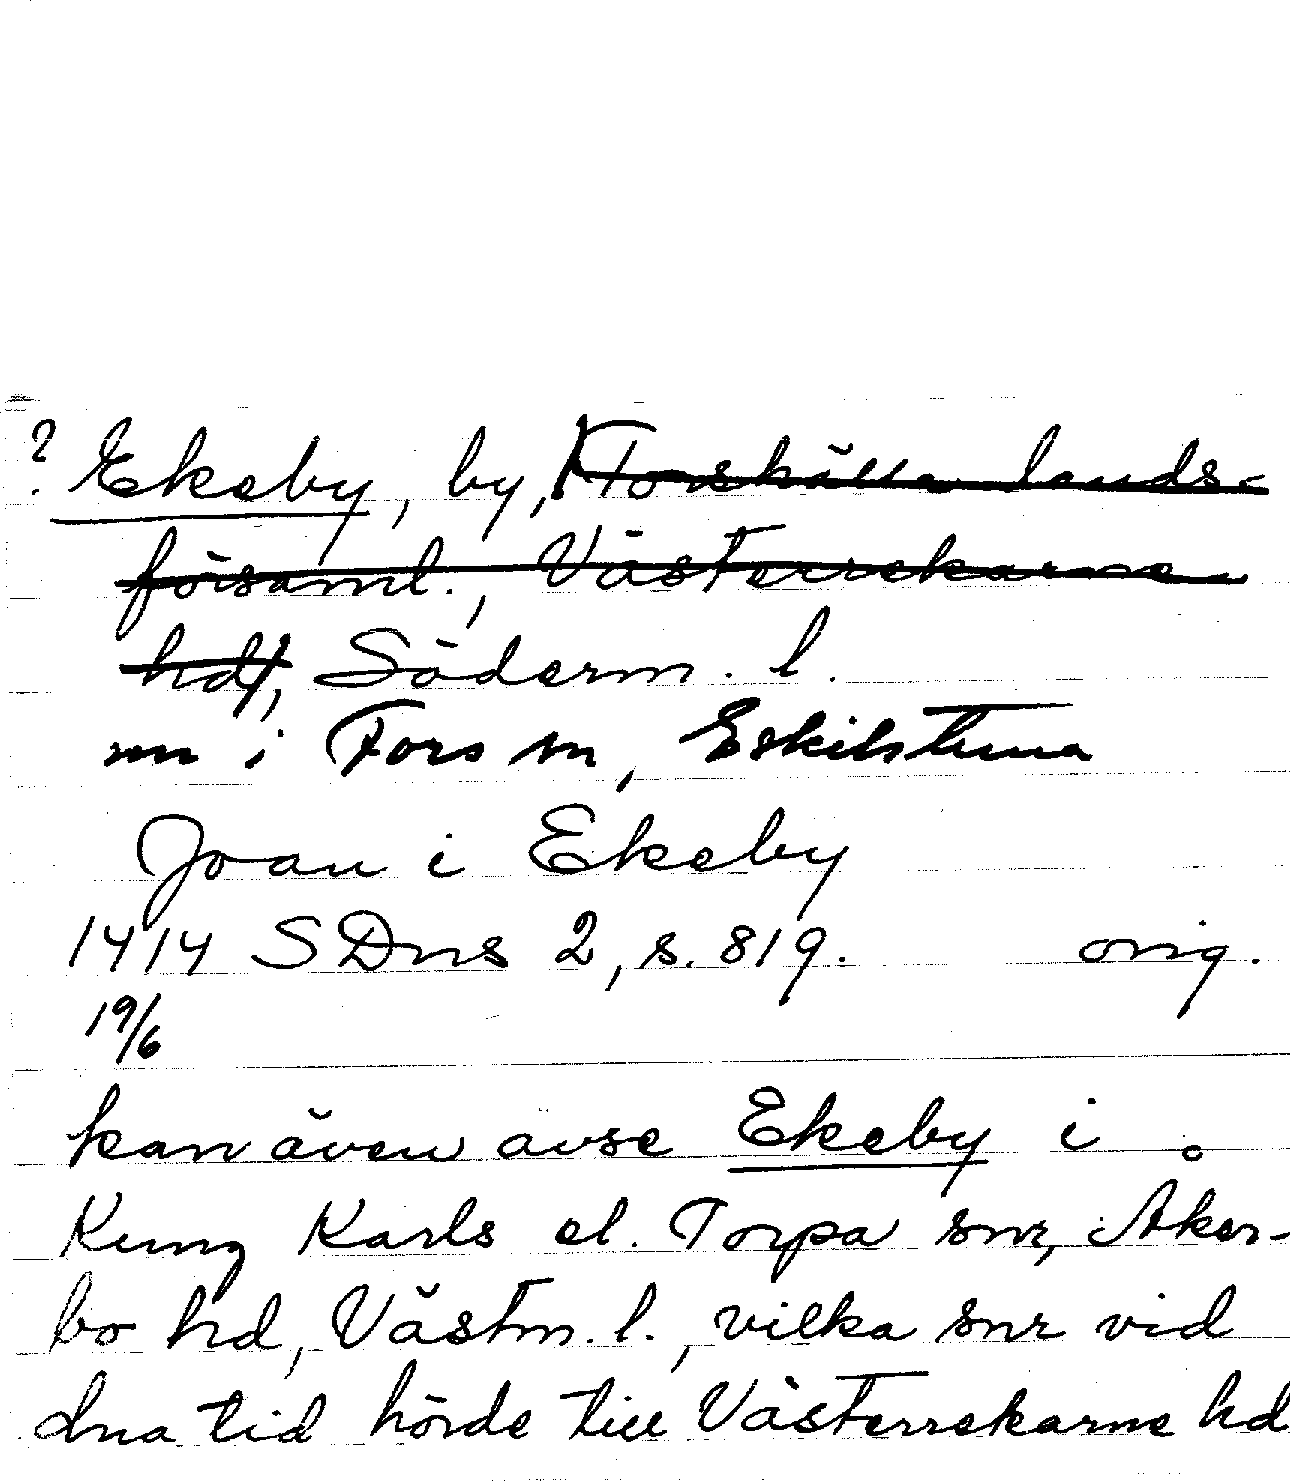 ? Ekeby, by, Torshälla lands-
församl., Västerrekarne
hd, Söderm. l.
nu i Fors sn, Eskilstuna
Joan i Ekeby
1414 SDns 2, s. 819. orig.
19/6
kan även avse Ekeby i
Kung Karls el. Torpa snr, Åker-
bo hd, Västm. l., vilka snr vid
dna tid hörde till Västerrekarne hd